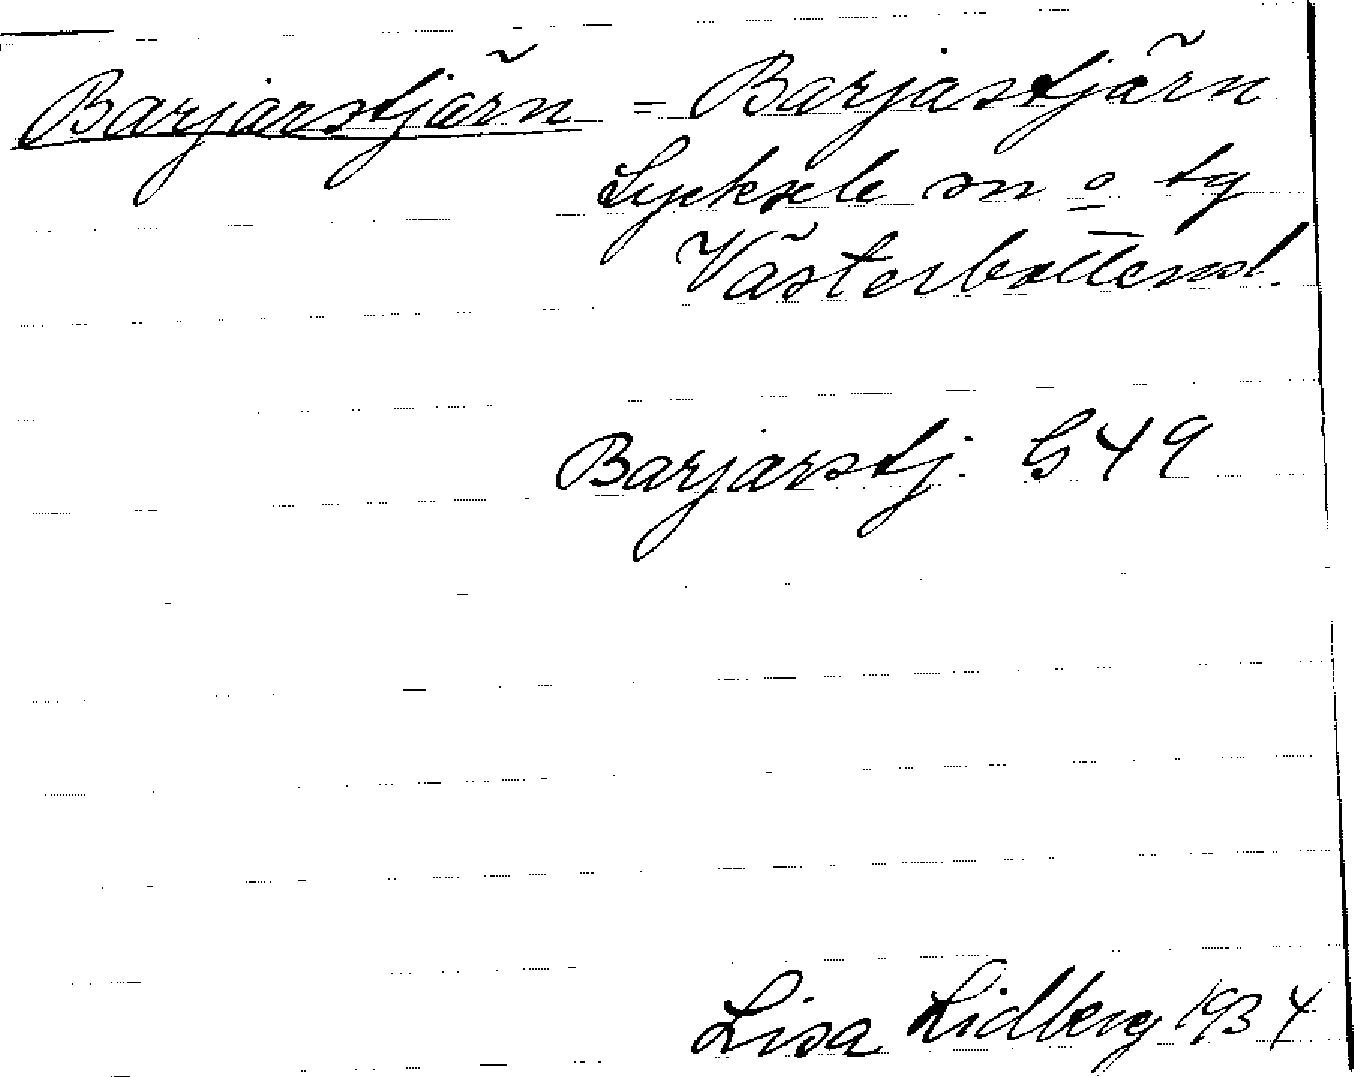 Barjarstjärn = Barjastjärn
Lycksele sn o tg
Västerbottensl.
Barjarstj. G49
Lisa Lidberg 1934